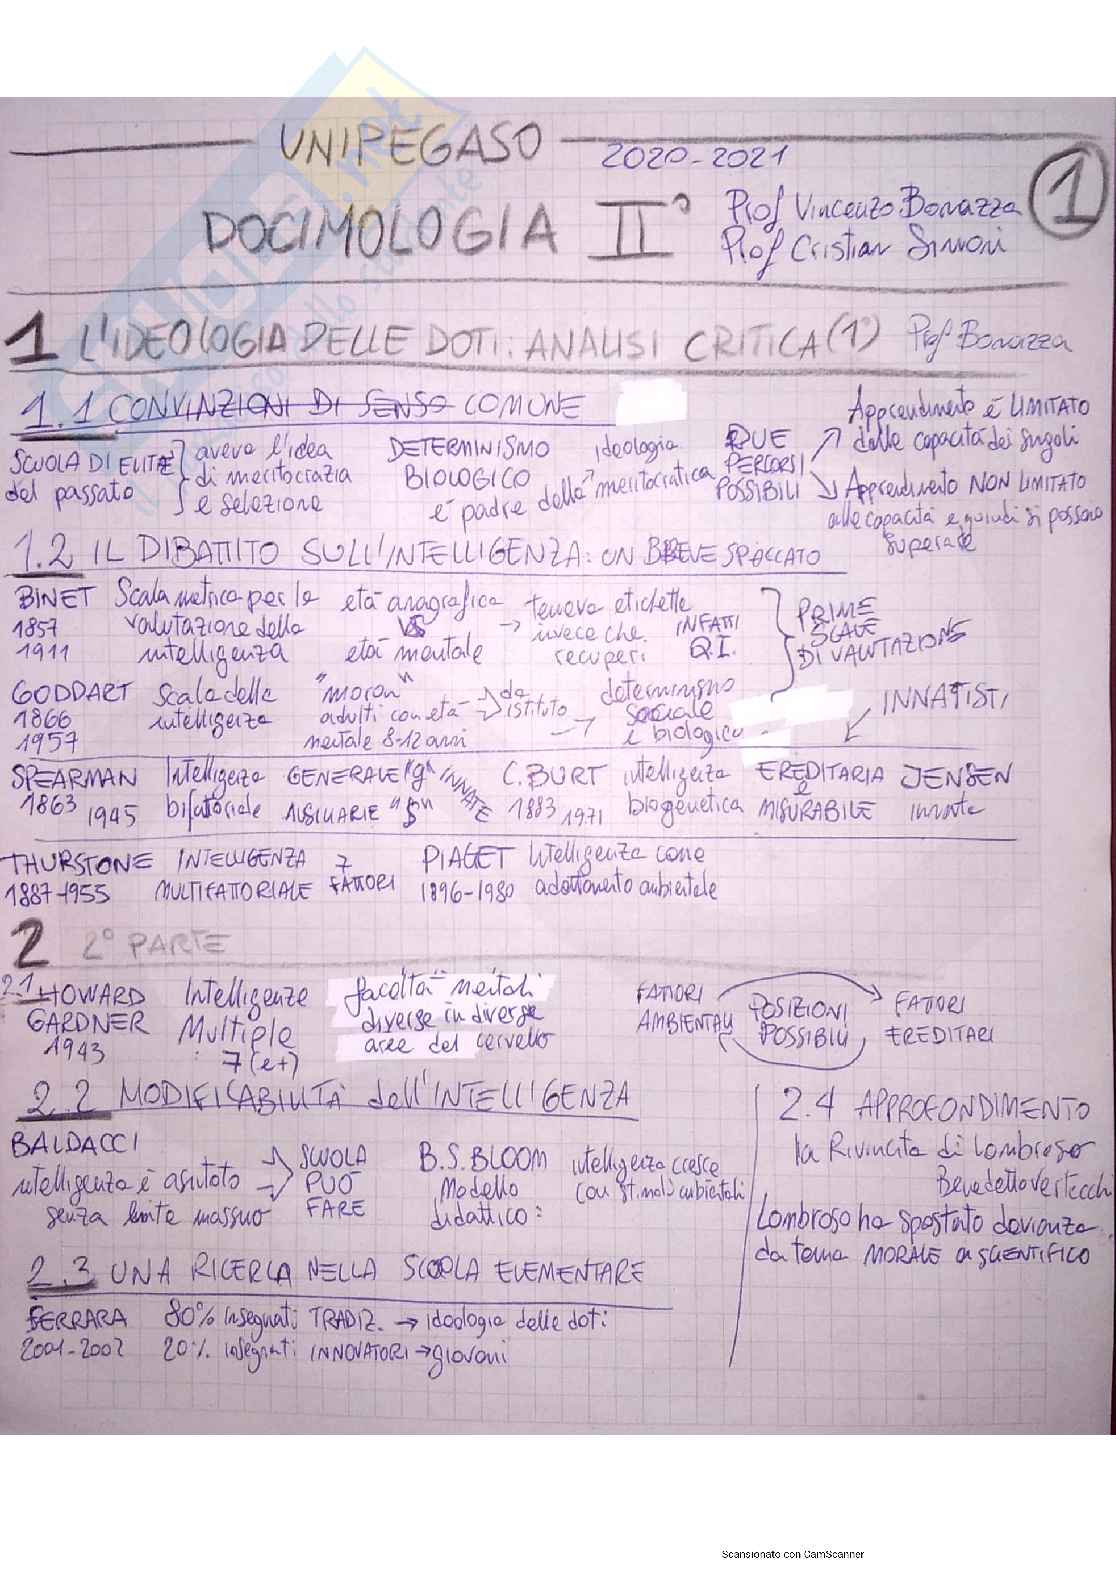 UNIPEGASO 2020-2021
DOCIMOLOGIA II° Prof Vincenzo Bonazza
Prof Cristian Simoni
1
1 L'IDEOLOGIA DELLE DOTI: ANALISI CRITICA (1°) Prof Bonazza
1.1 CONVINZIONI DI SENSO COMUNE
SCUOLA DI ELITE
del passato
aveva l'idea
di meritocrazia
e selezione
DETERMINISMO
BIOLOGICO
è padre della
ideologia
meritocratica
DUE
PERCORSI
POSSIBILI
Apprendimento è LIMITATO
dalle capacità dei singoli
Apprendimento NON LIMITATO
alle capacità e quindi si possono
superare
1.2 IL DIBATTITO SULL'INTELLIGENZA: UN BREVE SPACCATO
BINET
1857
1911
Scala metrica per la
valutazione della
intelligenza
età anagrafica
VS
età mentale
→ teneva etichette
invece che
recuperi
INFATTI
Q.I.
PRIME
SCALE
DI VALUTAZIONE
GODDART
1866
1957
Scala della
intelligenza
"moron"
adulti con età
mentale 8-12 anni
da
istituto
determinismo
sociale
e biologico
INNATISTI
SPEARMAN
1863 1945
Intelligenza GENERALE "g" INNATE
bifattoriale AUSILIARIE "S"
C. BURT
1883 1971
intelligenza EREDITARIA
biogenetica è MISURABILE
JENSEN
innata
THURSTONE
1887-1955
INTELLIGENZA 7
MULTIFATTORIALE FATTORI
PIAGET
1896-1980
Intelligenza come
adattamento ambientale
2 2° PARTE
2.1 HOWARD
GARDNER
1943
Intelligenze
Multiple
: 7 (e+)
facoltà mentali
diverse in diverse
aree del cervello
FATTORI
AMBIENTALI
POSIZIONI
POSSIBILI
FATTORI
EREDITARI
2.2 MODIFICABILITÀ dell'INTELLIGENZA
BALDACCI
intelligenza è
senza limite massimo
SCUOLA
PUÒ
FARE
B.S. BLOOM
Modello
didattico:
intelligenza cresce
con stimoli ambientali
2.3 UNA RICERCA NELLA SCUOLA ELEMENTARE
FERRARA 80% insegnanti TRADIZ. → ideologia delle doti
2001-2002 20% insegnanti INNOVATORI → giovani
2.4 APPROFONDIMENTO
la Rivincita di Lombroso
Benedetto Vertecchi
Lombroso ha spostato devianza
da tema MORALE a SCIENTIFICO
Scansionato con CamScanner